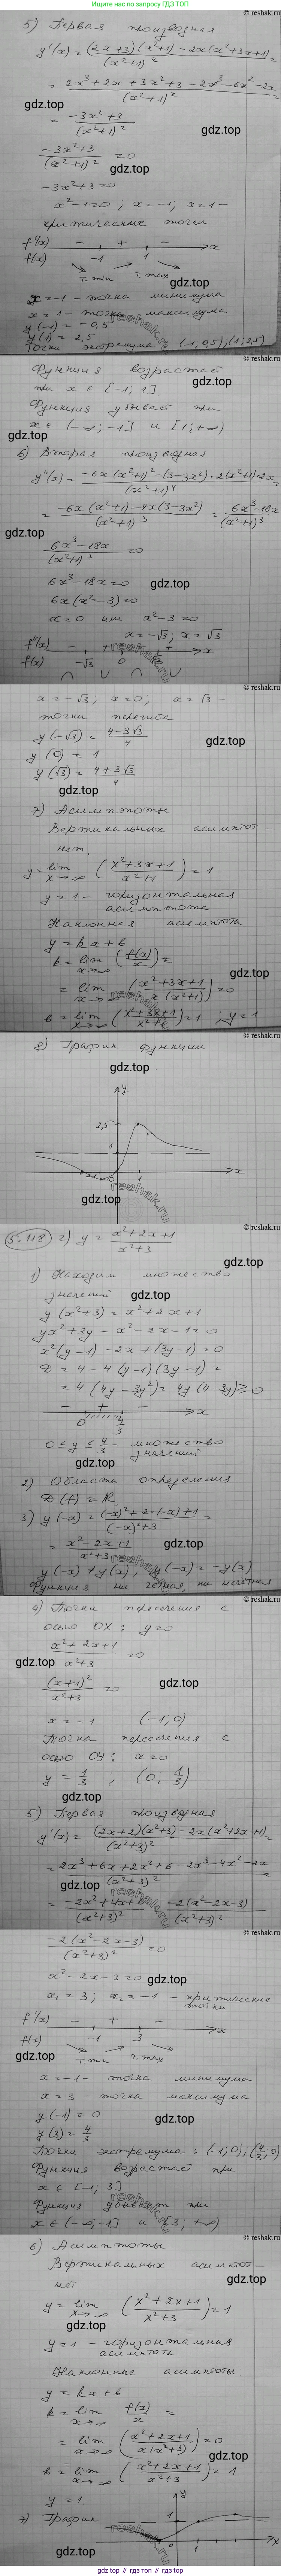 Больше решений на сайте GDZ.TOP
© reshak.ru
5) Первая производная
y'(x) = ((2x+3)(x²+1) - 2x(x²+3x+1))/(x²+1)² =
= (2x³+2x+3x²+3-2x³-6x²-2x)/(x²+1)² =
= (-3x²+3)/(x²+1)²
gdz.top
(-3x²+3)/(x²+1)² = 0
-3x²+3=0
x²-1=0; x=-1, x=1 -
критические точки
f'(x) - + - x
f(x) -1 1
т. min т. max
x=-1 - точка минимума
x=1 - точка максимума
y(-1) = -0,5
y(1) = 2,5
Точки экстремума (-1; 0,5); (1; 2,5)
© reshak.ru
Функция возрастает
при x ∈ [-1; 1]
Функция убывает при
x ∈ (-∞; -1] и [1; +∞)
gdz.top
6) Вторая производная
y''(x) = (-6x(x²+1)² - (3-3x²)·2(x²+1)·2x)/(x²+1)⁴ =
= (-6x(x²+1) - 4x(3-3x²))/(x²+1)³ = (6x³-18x)/(x²+1)³
(6x³-18x)/(x²+1)³ = 0
6x³-18x=0
6x(x²-3)=0
x=0 или x²-3=0
x=-√3; x=√3
f''(x) - + - + x
f(x) -√3 0 √3
© reshak.ru
x=-√3; x=0; x=√3 -
точки перегиба
y(-√3) = (4-3√3)/4
y(0) = 1
y(√3) = (4+3√3)/4
gdz.top
7) Асимптоты
Вертикальных асимптот -
нет,
y = lim x→∞ ((x²+3x+1)/(x²+1)) = 1
y=1 - горизонтальная
асимптота
Наклонная асимптота
y = kx+b
k = lim x→∞ (f(x)/x) =
= lim x→∞ ((x²+3x+1)/(x(x²+1))) = 0
b = lim x→∞ ((x²+3x+1)/(x²+1)) = 1, y=1
© reshak.ru
8) График функции
gdz.top
y
2,5
1
x
© reshak.ru
5.118 г) y = (x²+2x+1)/(x²+3)
1) Находим множество
значений
y(x²+3) = x²+2x+1
yx²+3y-x²-2x-1=0
x²(y-1)-2x+(3y-1)=0
D = 4-4(y-1)(3y-1) =
= 4(4y-3y²) = 4y(4-3y) ≥ 0
- + - x
0 4/3
0 ≤ y ≤ 4/3 - множество
значений
2) Область определения
D(f) = R
3) y(-x) = ((-x)²+2·(-x)+1)/((-x)²+3) =
= (x²-2x+1)/(x²+3)
y(-x) ≠ y(x); y(-x) = -y(x)
Функция ни четная, ни нечетная
© reshak.ru
4) Точки пересечения с
осью OX: y=0
(x²+2x+1)/(x²+3) = 0
(x+1)²/(x²+3) = 0
x=-1 (-1; 0)
Точка пересечения с
осью OY: x=0
y = 1/3, (0; 1/3)
gdz.top
5) Первая производная
y'(x) = ((2x+2)(x²+3)-2x(x²+2x+1))/(x²+3)² =
= (2x³+6x+2x²+6-2x³-4x²-2x)/(x²+3)² =
= (-2x²+4x+6)/(x²+3)² = -2(x²-2x-3)/(x²+3)²
© reshak.ru
-2(x²-2x-3)/(x²+3)² = 0
x²-2x-3=0
x₁=3; x₂=-1 - критические
точки
f'(x) - + - x
f(x) -1 3
т. min т. max
x=-1 - точка минимума
x=3 - точка максимума
y(-1) = 0
y(3) = 4/3
Точки экстремума: (-1; 0), (4/3; 0)
Функция возрастает при
x ∈ [-1; 3]
Функция убывает при
x ∈ (-∞; -1] и [3; +∞)
© reshak.ru
6) Асимптоты
Вертикальных асимптот -
нет
y = lim x→∞ ((x²+2x+1)/(x²+3)) = 1
gdz.top
y=1 - горизонтальная
асимптота
Наклонные асимптоты
y = kx+b
k = lim x→∞ f(x)/x =
= lim x→∞ ((x²+2x+1)/(x(x²+3))) = 0
b = lim x→∞ ((x²+2x+1)/(x²+3)) = 1
y=1.
7) График
y
1
1
x
gdz.top // gdz.top // gdz.top